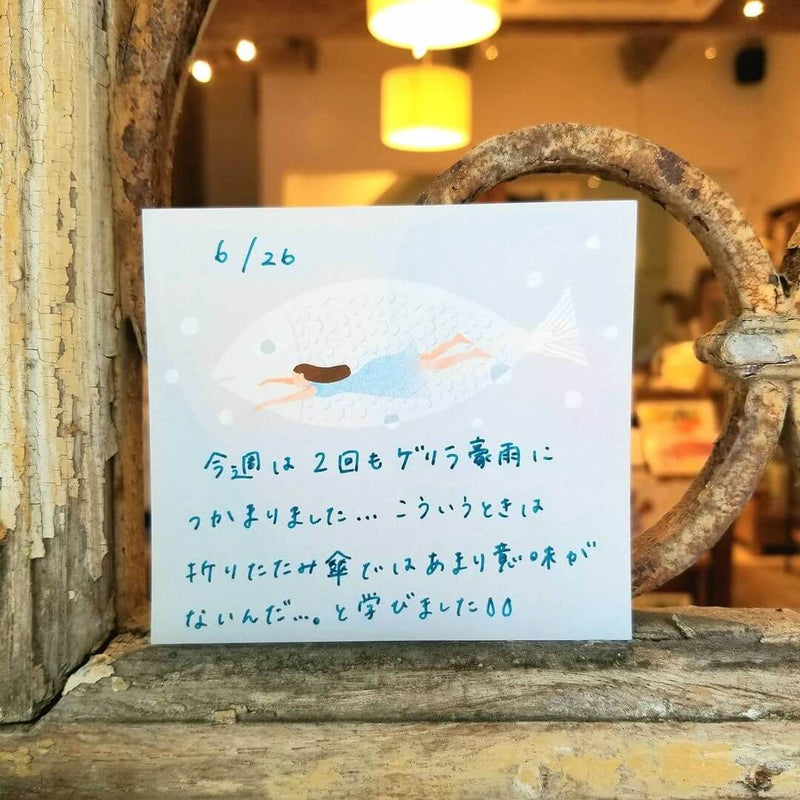 6/26
今週は2回もゲリラ豪雨に
つかまりました…こういうときは
折りたたみ傘ではあまり意味が
ないんだ…。と学びました